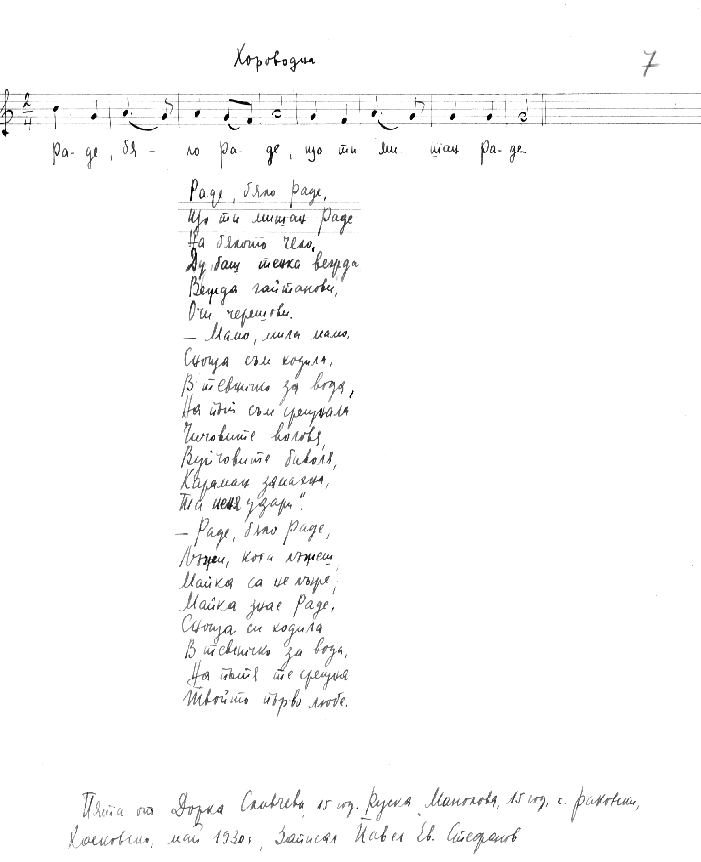 Хороводна
7
2
4
Ра-де, бя - ло ра-де, що ти ми щан ра-де.
Раде, бяло Раде,
Що ти мищан Раде
На бялото чело,
Ду баш тенка вежда
Вежда гайтанови,
Очи черешови.
– Мамо, мила мамо,
Снуща съм ходила,
В тевничко за вода,
На път съм срещнала
Чичовите волове,
Вуйчовите биволя,
Караман замахна,
Та меня удари".
– Раде, бяло Раде,
Лъжи, кога лъжеш,
Майка са не лъже,
Майка знае Раде.
Снуща си ходила
В тевничко за вода,
На пътя те срещна
Твойто първо любе.
Пята от Дорка Славчева, 15 год. Руска Манолова, 15 год. с. Раковски,
Хасковско, май 1930 г. Записал Павел Ев. Стефанов